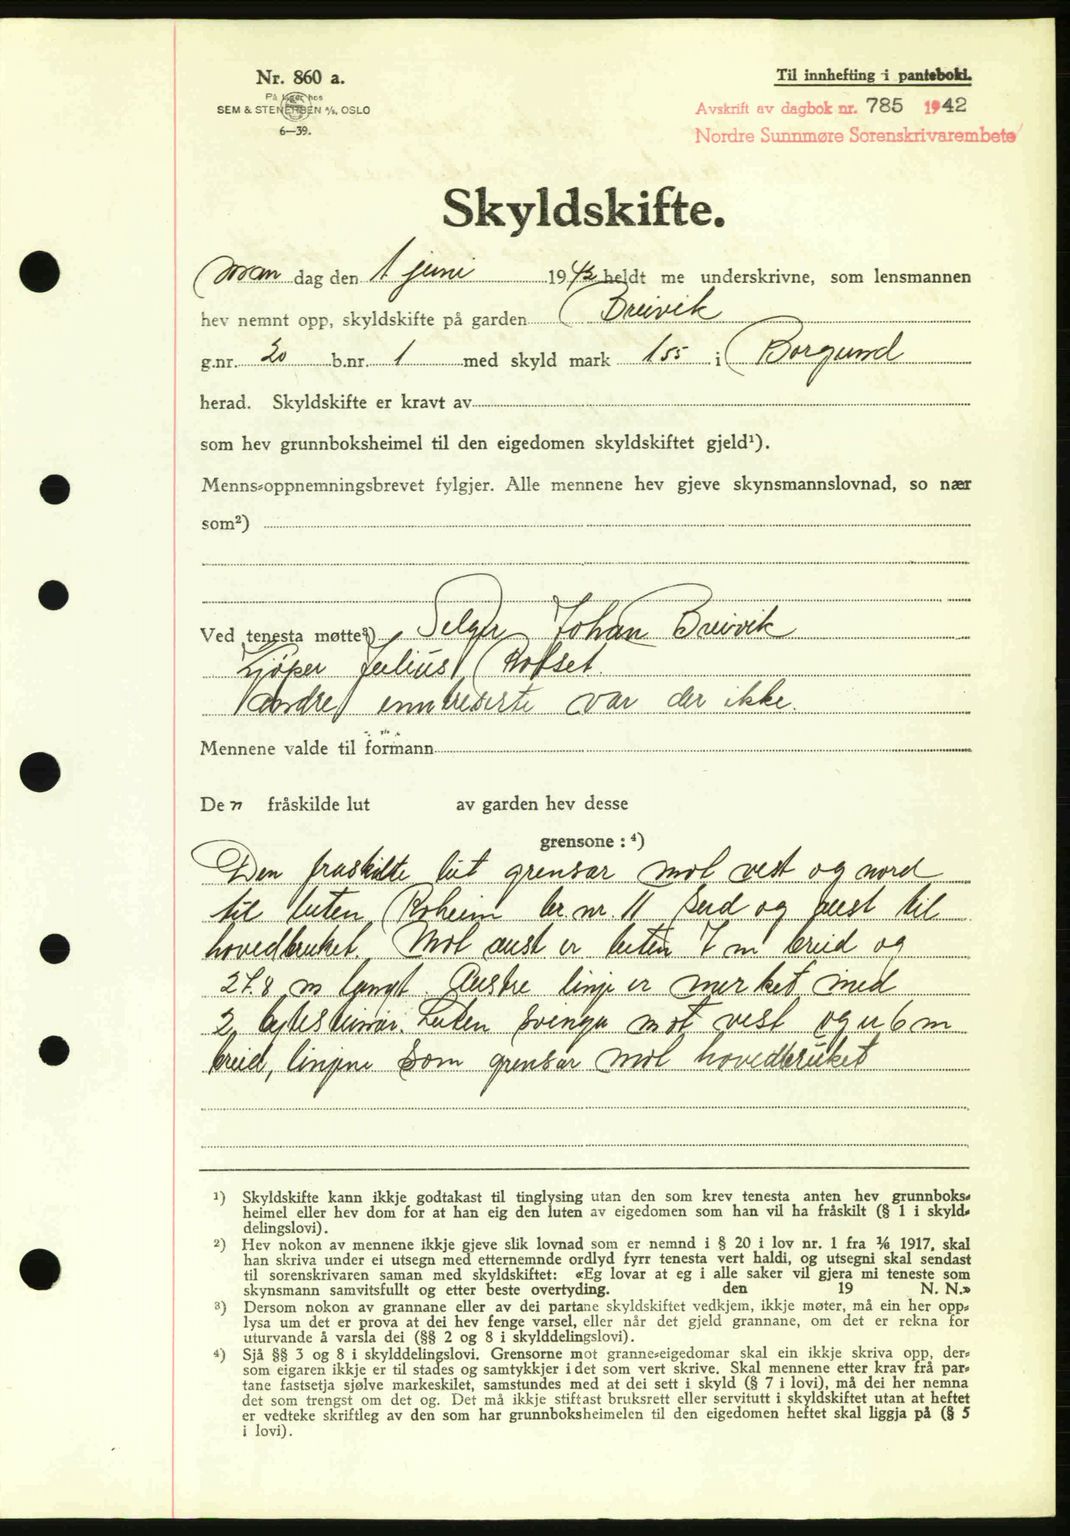 Nr. 860 a.
På lager hos
SEM & STENERSEN A/S, OSLO
6—39.
Til innhefting i pantebokl.
Avskrift av dagbok nr. 785 1942
Nordre Sunnmøre Sorenskrivarembete
Skyldskifte.
Man dag den 1 juni 1942 heldt me underskrivne, som lensmannen
hev nemnt opp, skyldskifte på garden Breivik
g.nr. 20 b.nr. 1 med skyld mark 1 55 i Borgund
herad. Skyldskifte er kravt av
som hev grunnboksheimel til den eigedomen skyldskiftet gjeld¹).
Menns-oppnemningsbrevet fylgjer. Alle mennene hev gjeve skynsmannslovnad, so nær
som²)
Ved tenesta møtte³) Selger Johan Breivik
Kjøper Julius Rotset.
andre var der ikke.
Mennene valde til formann
De n fråskilde lut av garden hev desse
grensone : ⁴)
Den fraskilte lut grensar mot vest og nord
til luten Roheim br. nr. 11 Syd og aust til
hovedbruket. Mot aust er luten 7 m breid og
27.8 m langt. Austre linje er merket med
2 Luten svinga mot vest og er 6 m
breid, linjene som grensar mot hovedbruket
¹) Skyldskifte kann ikkje godtakast til tinglysing utan den som krev tenesta anten hev grunnboks-
heimel eller hev dom for at han eig den luten av eigedomen som han vil ha fråskilt (§ 1 i skyld-
delingslovi).
²) Hev nokon av mennene ikkje gjeve slik lovnad som er nemnd i § 20 i lov nr. 1 fra 1/6 1917, skal
han skriva under ei utsegn med etternemnde ordlyd fyrr tenesta vert haldi, og utsegni skal sendast
til sorenskrivaren saman med skyldskiftet: «Eg lovar at eg i alle saker vil gjera mi teneste som
skynsmann samvitsfullt og etter beste overtyding. den 19 N. N.»
³) Dersom nokon av grannane eller av dei partane skyldskiftet vedkjem, ikkje møter, må ein her opp-
lysa um det er prova at dei hev fenge varsel, eller når det gjeld grannane, om det er rekna for
uturvande å varsla dei (§§ 2 og 8 i skylddelingslovi).
⁴) Sjå §§ 3 og 8 i skylddelingslovi. Grensorne mot granne-eigedomar skal ein ikkje skriva opp, der-
som eigaren ikkje er til stades og samtykkjer i det som vert skrive. Skal mennene etter krav frå par-
tane fastsetja sjølve markeskilet, samstundes med at dei sett i skyld (§ 7 i lovi), må dei her nemna
det som trengst om det og. Det må ikkje stiftast bruksrett eller servitutt i skyldskiftet utan at heftet
er vedteke skriftleg av den som har grunnboksheimelen til den eigedomen heftet skal liggja på (§ 5
i lovi).